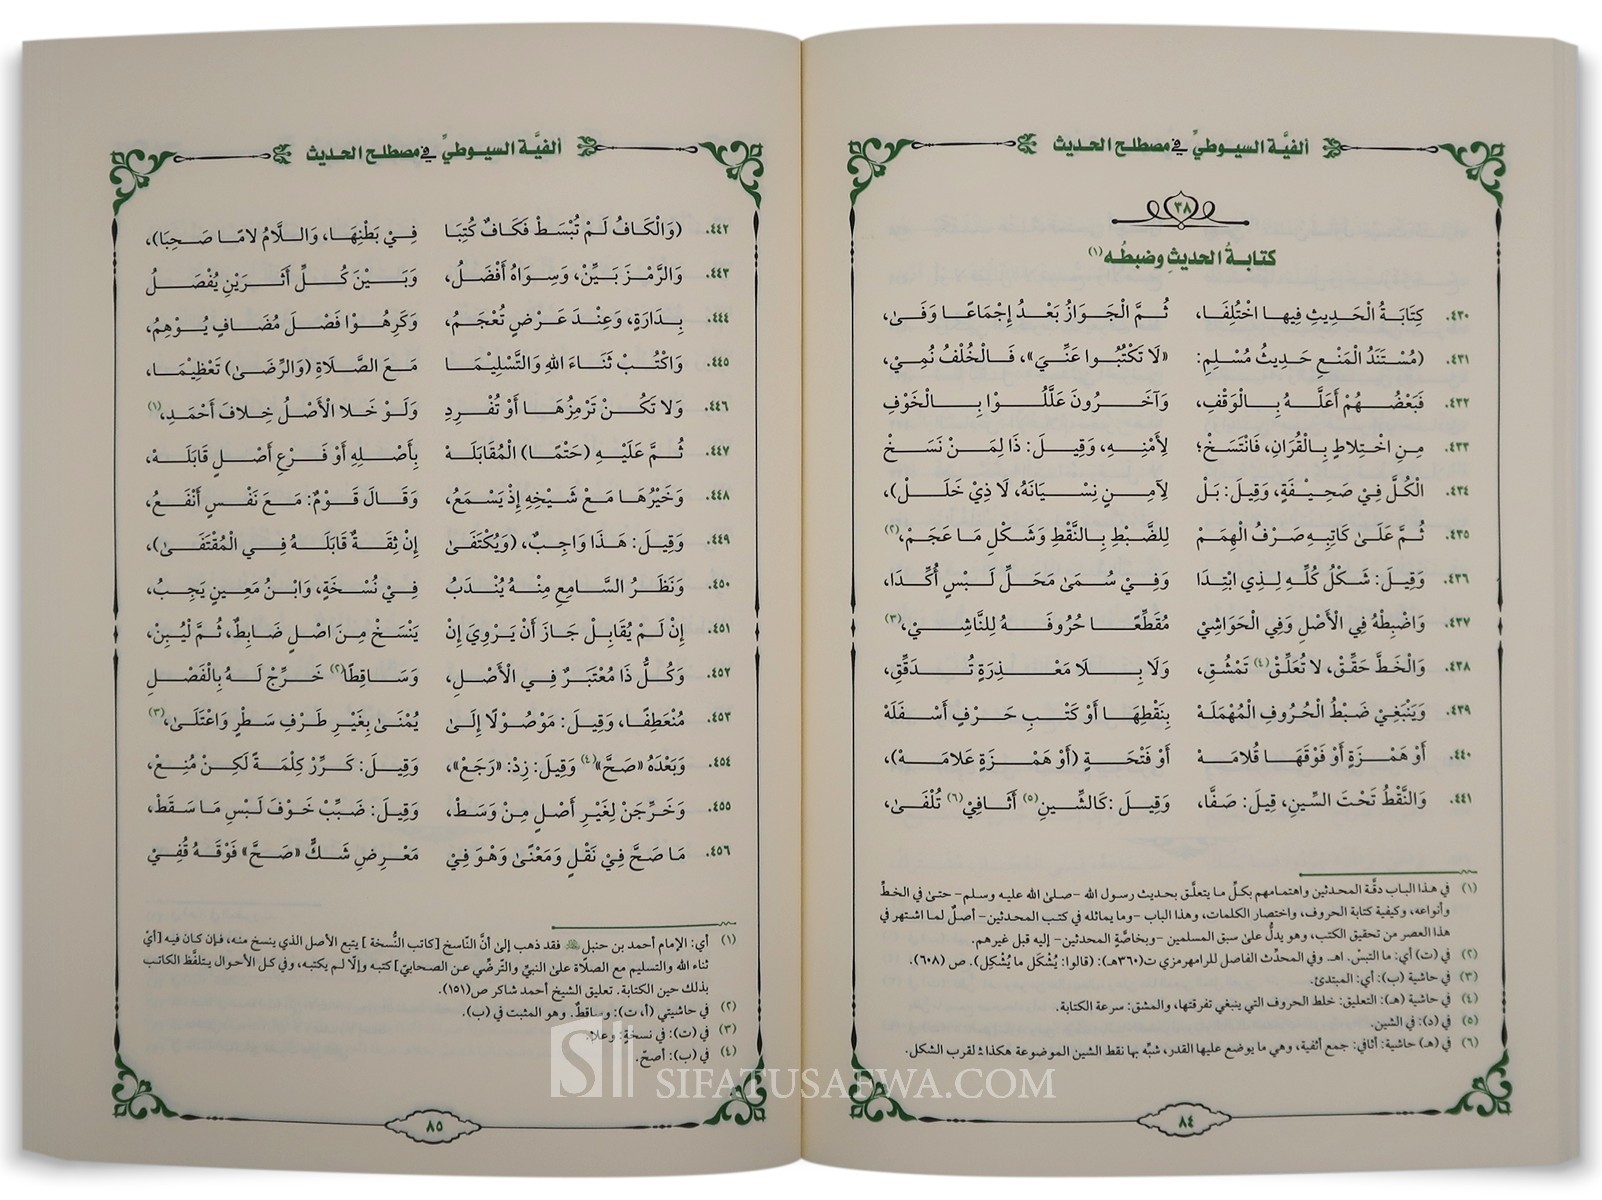 ألفيَّة السيوطيِّ في مصطلح الحديث
٣٨
كتابةُ الحديثِ وضبطُه (١)
٤٣٠. كِتَابَةُ الْحَدِيثِ فِيهَا اخْتُلِفَا، ثُمَّ الْجَوَازُ بَعْدُ إِجْمَاعًا وَفَى،
٤٣١. (مُسْتَنَدُ الْمَنْعِ حَدِيثُ مُسْلِمِ: «لَا تَكْتُبُوا عَنِّيَ»، فَالْخُلْفُ نُمِيْ،
٤٣٢. فَبَعْضُهُمْ أَعَلَّهُ بِالْوَقْفِ، وَآخَرُونَ عَلَّلُوْا بِالْخَوْفِ
٤٣٣. مِنِ اخْتِلاطٍ بِالْقُرَانِ، فَانْتَسَخْ؛ لِأَمْنِهِ، وَقِيلَ: ذَا لِمَنْ نَسَخْ
٤٣٤. الْكُلَّ فِيْ صَحِيْفَةٍ، وَقِيلَ: بَلْ لِآمِنٍ نِسْيَانَهُ، لَا ذِيْ خَلَلْ)،
٤٣٥. ثُمَّ عَلَى كَاتِبِهِ صَرْفُ الْهِمَمْ لِلضَّبْطِ بِالنَّقْطِ وَشَكْلِ مَا عَجَمْ، (٢)
٤٣٦. وَقِيلَ: شَكْلُ كُلِّهِ لِذِي ابْتِدَا وَفِيْ سُمَى مَحَلِّ لَبْسٍ أُكِّدَا،
٤٣٧. وَاضْبِطْهُ فِي الْأَصْلِ وَفِي الْحَوَاشِيْ مُقَطِّعًا حُرُوفَهُ لِلنَّاشِيْ، (٣)
٤٣٨. وَالْخَطَّ حَقِّقْ، لا تُعَلِّقْ (٤) تَمْشُقِ، وَلَا بِلَا مَعْذِرَةٍ تُدَقِّقِ،
٤٣٩. وَيَنْبَغِيْ ضَبْطُ الْحُرُوفِ الْمُهْمَلَهْ بِنَقْطِهَا أَوْ كَتْبِ حَرْفٍ أَسْفَلَهْ
٤٤٠. أَوْ هَمْزَةٍ أَوْ فَوْقَهَا قُلَامَهْ أَوْ فَتْحَةٍ (أَوْ هَمْزَةٍ عَلَامَهْ)،
٤٤١. وَالنَّقْطُ تَحْتَ السِّينِ، قِيلَ: صَفَّا، وَقِيلَ: كَالشِّينِ (٥) أَثَافِيْ (٦) تُلْفَى،
(١) في هذا الباب دقَّة المحدثين واهتمامهم بكلِّ ما يتعلَّق بحديث رسول الله -صلى الله عليه وسلم- حتى في الخطِّ
وأنواعه، وكيفية كتابة الحروف، واختصار الكلمات، وهذا الباب -وما يماثله في كتب المحدثين- أصلٌ لما اشتهر في
هذا العصر من تحقيق الكتب، وهو يدلُّ على سبق المسلمين -وبخاصَّةٍ المحدثين- إليه قبل غيرهم.
(٢) في (ت) أي: ما التبسَ. اهـ. وفي المحدِّث الفاصل للرامهرمزي ت(٣٦٠هـ): (قالوا: يُشْكَل ما يُشْكِل). ص (٦٠٨).
(٣) في حاشية (ب): أي: المبتدئ.
(٤) في حاشية (هـ): التعليق: خلط الحروف التي ينبغي تفرقتها، والمشق: سرعة الكتابة.
(٥) في (د): في الشين.
(٦) في (هـ) حاشية: أثافي: جمع أثفية، وهي ما يوضع عليها القدر، شبَّه بها نقط الشين الموضوعة هكذا ∴ لقرب الشكل.
٨٤
ألفيَّة السيوطيِّ في مصطلح الحديث
٤٤٢. (وَالْكَافُ لَمْ تُبْسَطْ فَكَافٌ كُتِبَا فِيْ بَطْنِهَا، وَاللَّامُ لامًا صَحِبَا)،
٤٤٣. وَالرَّمْزَ بَيِّنْ، وَسِوَاهُ أَفْضَلُ، وَبَيْنَ كُلِّ أَثَرَيْنِ يُفْصَلُ
٤٤٤. بِدَارَةٍ، وَعِنْدَ عَرْضٍ تُعْجَمُ، وَكَرِهُوْا فَصْلَ مُضَافٍ يُوْهِمُ،
٤٤٥. وَاكْتُبْ ثَنَاءَ اللهِ وَالتَّسْلِيْمَا مَعَ الصَّلَاةِ (وَالرِّضَى) تَعْظِيْمَا،
٤٤٦. وَلا تَكُنْ تَرْمِزُهَا أَوْ تُفْرِدِ وَلَوْ خَلا الْأَصْلُ خِلافَ أَحْمَدِ، (١)
٤٤٧. ثُمَّ عَلَيْهِ (حَتْمًا) الْمُقَابَلَهْ بِأَصْلِهِ أَوْ فَرْعِ أَصْلٍ قَابَلَهْ،
٤٤٨. وَخَيْرُهَا مَعْ شَيْخِهِ إِذْ يَسْمَعُ، وَقَالَ قَوْمٌ: مَعَ نَفْسٍ أَنْفَعُ،
٤٤٩. وَقِيلَ: هَذَا وَاجِبٌ، (وَيُكْتَفَى إِنْ ثِقَةٌ قَابَلَهُ فِي الْمُقْتَفَى)،
٤٥٠. وَنَظَرُ السَّامِعِ مِنْهُ يُنْدَبُ فِيْ نُسْخَةٍ، وَابْنُ مَعِينٍ يَجِبُ،
٤٥١. إِنْ لَمْ يُقَابِلْ جَازَ أَنْ يَرْوِيَ إِنْ يَنْسَخْ مِنَ اصْلٍ ضَابِطٌ، ثُمَّ لْيُبِنْ،
٤٥٢. وَكُلُّ ذَا مُعْتَبَرٌ فِي الْأَصْلِ، وَسَاقِطًا (٢) خَرِّجْ لَهُ بِالْفَصْلِ
٤٥٣. مُنْعَطِفًا، وَقِيلَ: مَوْصُولًا إِلَى يُمْنَى بِغَيْرِ طَرْفِ سَطْرٍ وَاعْتَلَى، (٣)
٤٥٤. وَبَعْدَهُ «صَحَّ» (٤) وَقِيلَ: زِدْ: «رَجَعْ»، وَقِيلَ: كَرِّرْ كِلْمَةً لَكِنْ مُنِعْ،
٤٥٥. وَخَرِّجَنْ لِغَيْرِ أَصْلٍ مِنْ وَسَطْ، وَقِيلَ: ضَبِّبْ خَوْفَ لَبْسِ مَا سَقَطْ،
٤٥٦. مَا صَحَّ فِيْ نَقْلٍ وَمَعْنًى وَهْوَ فِيْ مَعْرِضِ شَكٍّ «صَحَّ» فَوْقَهُ قُفِيْ
(١) أي: الإمام أحمد بن حنبل فقد ذهب إلى أنَّ النَّاسخ [كاتب النُّسخة] يتبع الأصل الذي ينسخ منه، فإن كان فيه [أيْ
ثناء الله والتسليم مع الصلَّاة على النبيِّ والتَّرضِّي عن الصحابيّ] كتبه وإلَّا لم يكتبه، وفي كل الأحوال يتلفَّظ الكاتب
بذلك حين الكتابة. تعليق الشيخ أحمد شاكر ص(١٥١).
(٢) في حاشيتي (أ، ت): وساقطٌ. وهو المثبت في (ب).
(٣) في (ت): في نسخةٍ: وعلا.
(٤) في (ب): أصحّ.
٨٥
SIFATUSAFWA.COM